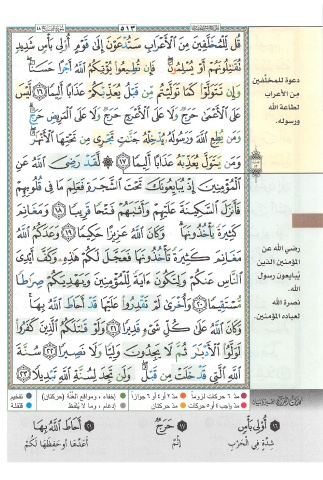 ٥١٣
قُل لِّلْمُخَلَّفِينَ مِنَ ٱلْأَعْرَابِ سَتُدْعَوْنَ إِلَىٰ قَوْمٍ أُو۟لِى بَأْسٍ شَدِيدٍ
تُقَـٰتِلُونَهُمْ أَوْ يُسْلِمُونَ ۖ فَإِن تُطِيعُوا۟ يُؤْتِكُمُ ٱللَّهُ أَجْرًا حَسَنًا ۖ
وَإِن تَتَوَلَّوْا۟ كَمَا تَوَلَّيْتُم مِّن قَبْلُ يُعَذِّبْكُمْ عَذَابًا أَلِيمًا ﴿١٦﴾ لَّيْسَ
عَلَى ٱلْأَعْمَىٰ حَرَجٌ وَلَا عَلَى ٱلْأَعْرَجِ حَرَجٌ وَلَا عَلَى ٱلْمَرِيضِ حَرَجٌ ۗ
وَمَن يُطِعِ ٱللَّهَ وَرَسُولَهُۥ يُدْخِلْهُ جَنَّـٰتٍ تَجْرِى مِن تَحْتِهَا ٱلْأَنْهَـٰرُ ۖ
وَمَن يَتَوَلَّ يُعَذِّبْهُ عَذَابًا أَلِيمًا ﴿١٧﴾ ۞ لَّقَدْ رَضِىَ ٱللَّهُ عَنِ
ٱلْمُؤْمِنِينَ إِذْ يُبَايِعُونَكَ تَحْتَ ٱلشَّجَرَةِ فَعَلِمَ مَا فِى قُلُوبِهِمْ
فَأَنزَلَ ٱلسَّكِينَةَ عَلَيْهِمْ وَأَثَـٰبَهُمْ فَتْحًا قَرِيبًا ﴿١٨﴾ وَمَغَانِمَ
كَثِيرَةً يَأْخُذُونَهَا ۗ وَكَانَ ٱللَّهُ عَزِيزًا حَكِيمًا ﴿١٩﴾ وَعَدَكُمُ ٱللَّهُ
مَغَانِمَ كَثِيرَةً تَأْخُذُونَهَا فَعَجَّلَ لَكُمْ هَـٰذِهِۦ وَكَفَّ أَيْدِىَ
ٱلنَّاسِ عَنكُمْ وَلِتَكُونَ ءَايَةً لِّلْمُؤْمِنِينَ وَيَهْدِيَكُمْ صِرَٰطًا
مُّسْتَقِيمًا ﴿٢٠﴾ وَأُخْرَىٰ لَمْ تَقْدِرُوا۟ عَلَيْهَا قَدْ أَحَاطَ ٱللَّهُ بِهَا ۚ
وَكَانَ ٱللَّهُ عَلَىٰ كُلِّ شَىْءٍ قَدِيرًا ﴿٢١﴾ وَلَوْ قَـٰتَلَكُمُ ٱلَّذِينَ كَفَرُوا۟
لَوَلَّوُا۟ ٱلْأَدْبَـٰرَ ثُمَّ لَا يَجِدُونَ وَلِيًّا وَلَا نَصِيرًا ﴿٢٢﴾ سُنَّةَ
ٱللَّهِ ٱلَّتِى قَدْ خَلَتْ مِن قَبْلُ ۖ وَلَن تَجِدَ لِسُنَّةِ ٱللَّهِ تَبْدِيلًا ﴿٢٣﴾
دعوة للمخلّفين
من الأعراب
لطاعة الله
ورسوله.
رضي الله عن
المؤمنين الذين
يُبايعون رسول
الله.
نصرة الله
لعباده المؤمنين.
مدّ ٦ حركات لزوماً مدّ ٢ أو ٤ أو ٦ جوازاً إخفاء، ومواقع الغُنّة (حركتان) تفخيم
مدّ واجب ٤ أو ٥ حركات مدّ حركتان إدغام، وما لا يُلفظ قلقلة
١٦ أُوْلِى بَأْسٍ
شِدَّةٍ فِي الْحَرْبِ
١٧ حَرَجٌ
إِثْمٌ
٢١ أَحَاطَ اللَّهُ بِهَا
أَعَدَّهَا أو حَفِظَهَا لَكُمْ